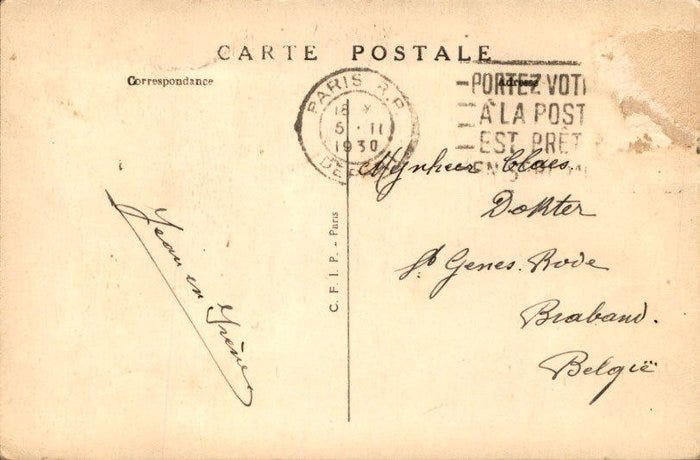 CARTE POSTALE
Correspondance
Adresse
PARIS R.P.
18
5 · II
1930
DÉPART
PORTEZ VOT
À LA POST
EST PRÊT
Mynheer Claes
Dokter
St Genes. Rode
Braband.
België
C. F. I. P. - Paris
Jean en Irène